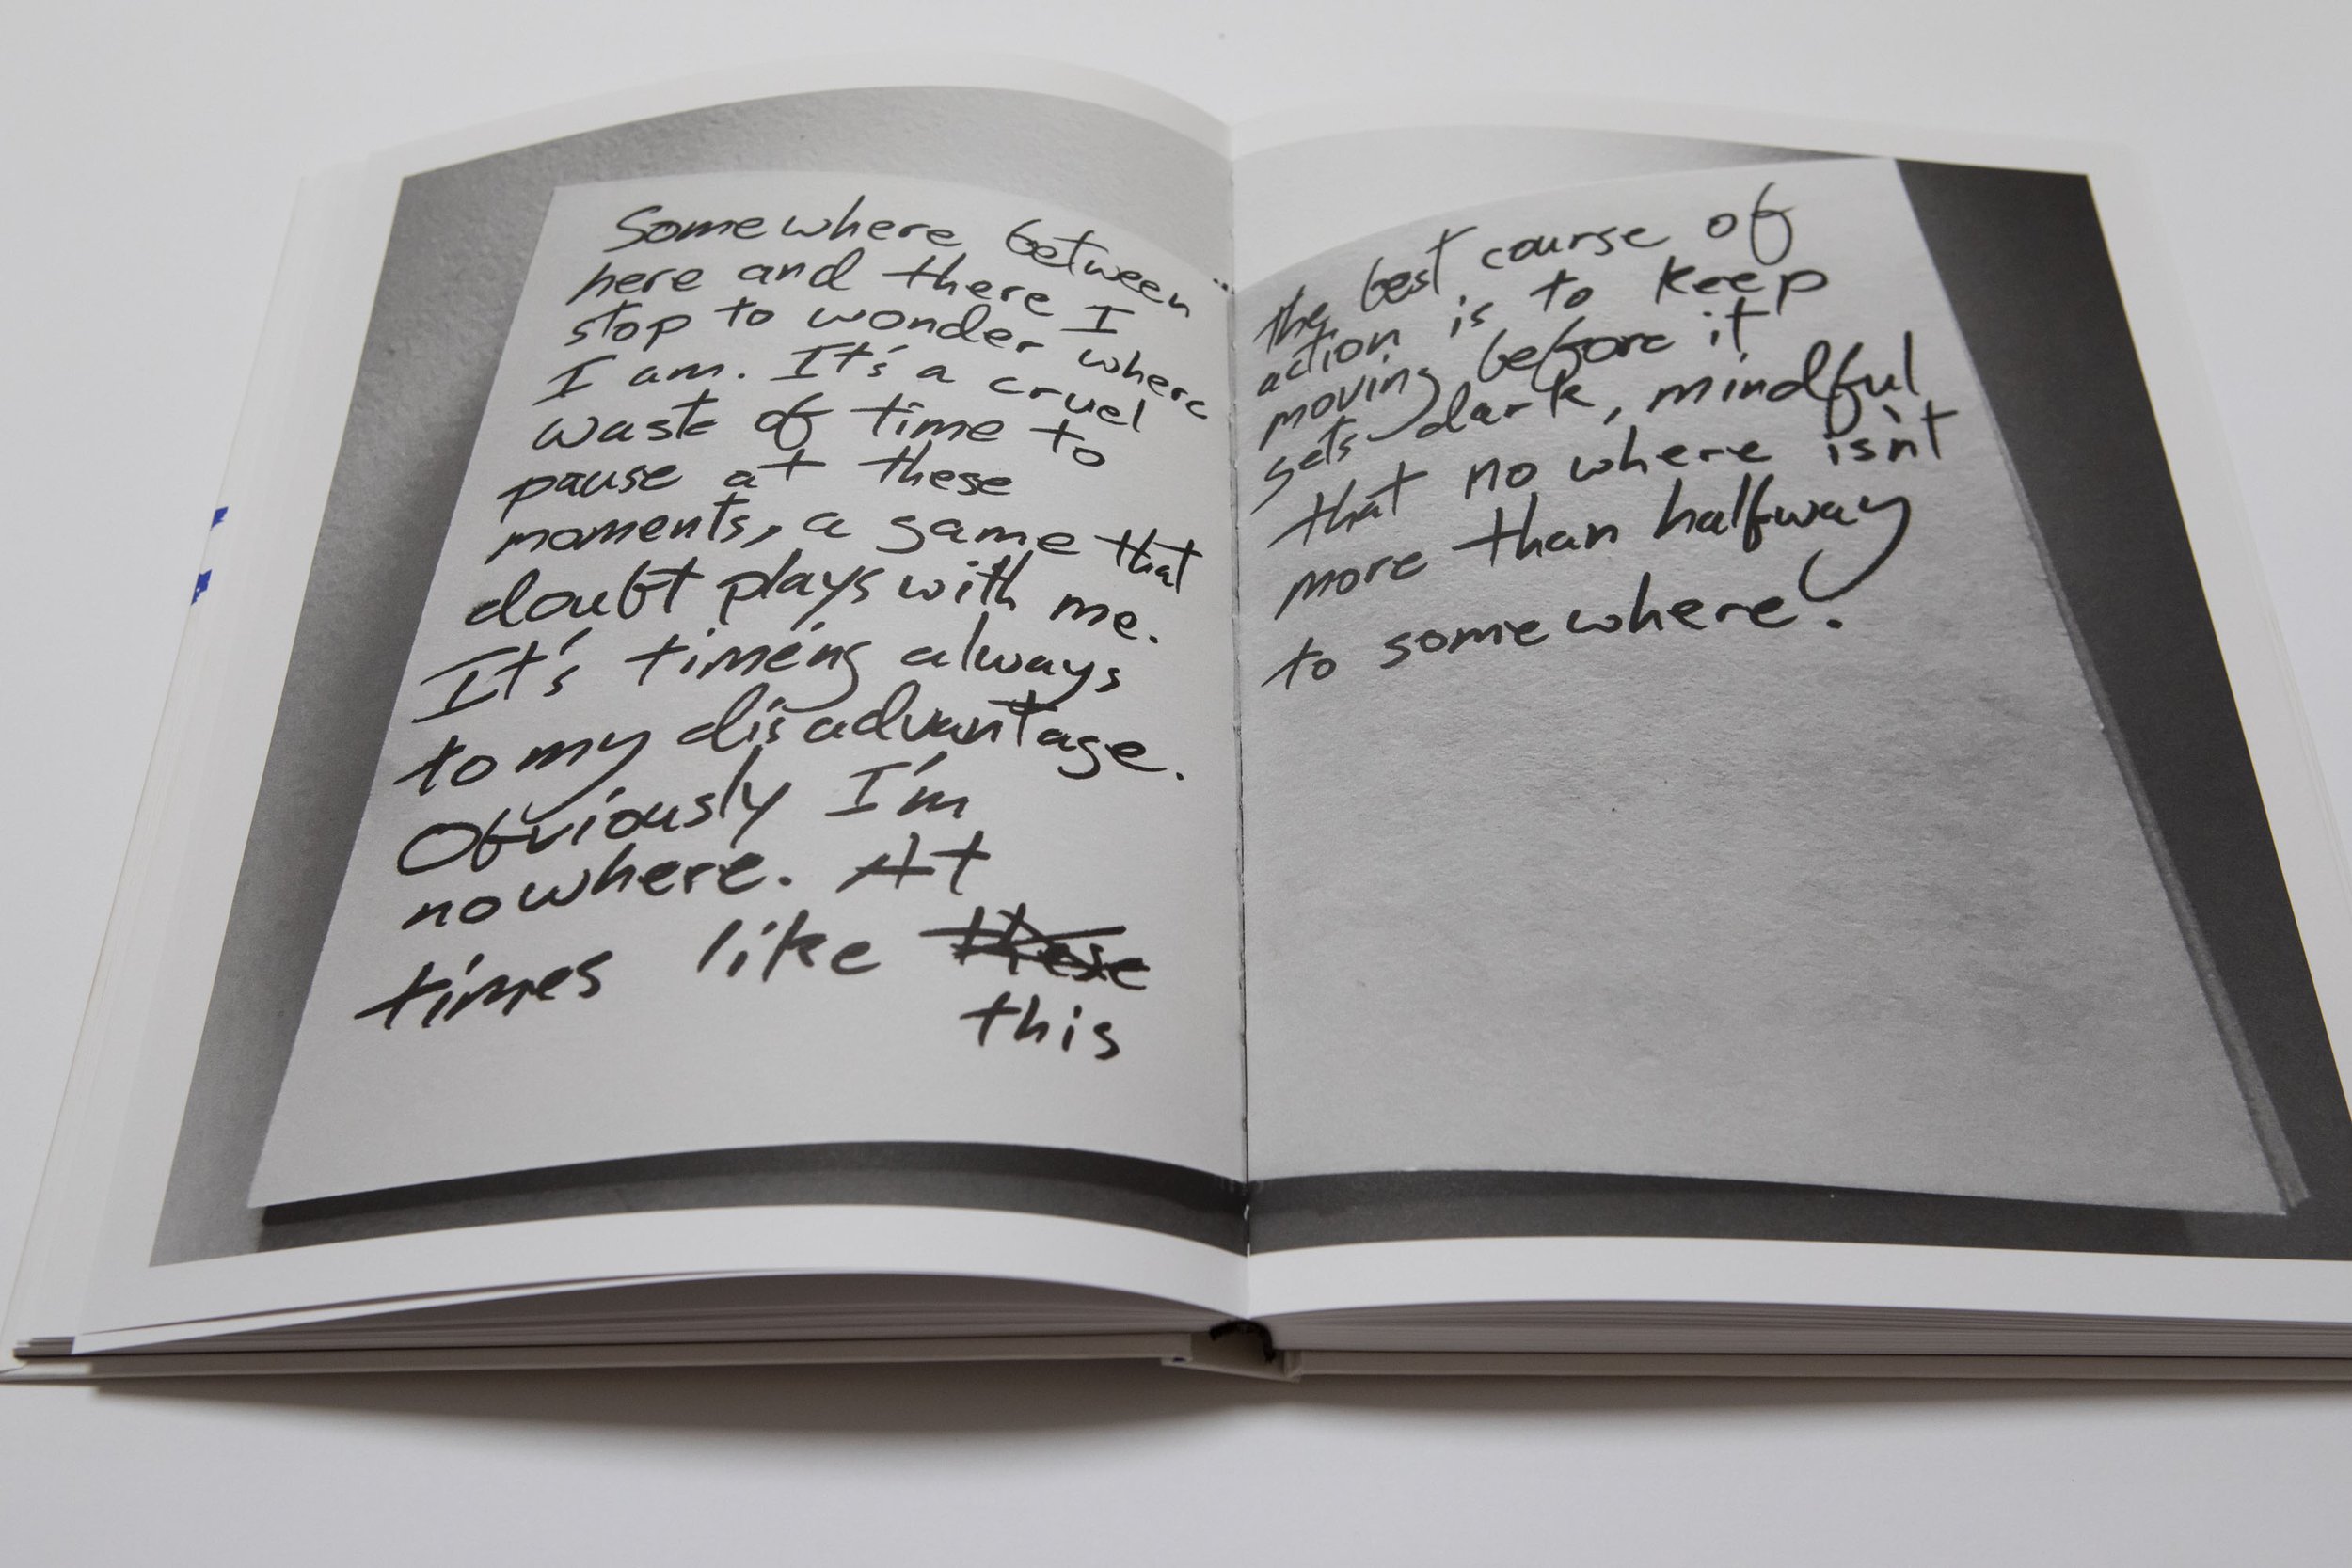 Somewhere between
here and there I
stop to wonder where
I am. It's a cruel
waste of time to
pause at these
moments, a game that
doubt plays with me.
It's timeing always
to my disadvantage.
Obviously I'm
nowhere. At
times like these
this
the best course of
action is to keep
moving before it
sets dark, mindful
that no where isn't
more than halfway
to somewhere.